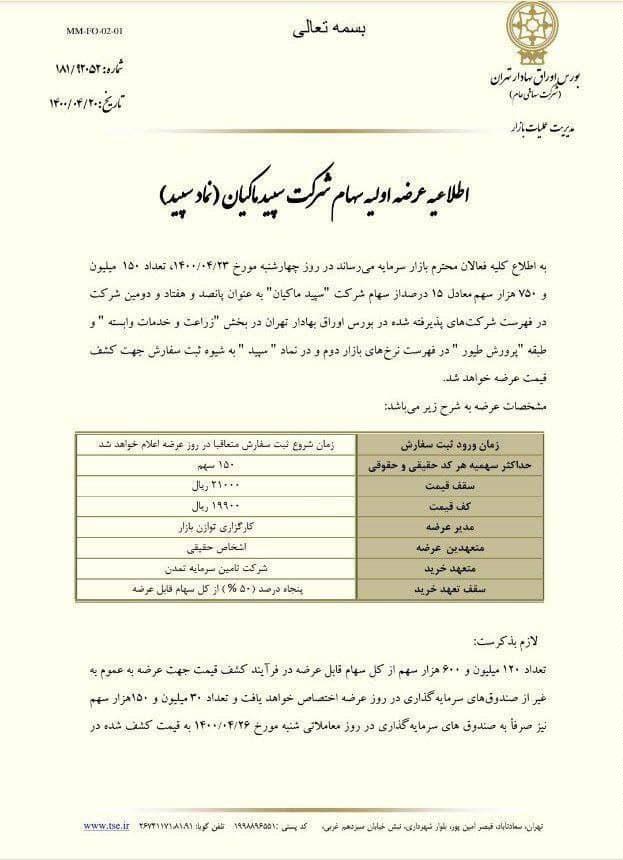 بسمه تعالی
MM-FO-02-01
شماره: ۱۸۱/۹۲۰۵۲
تاریخ: ۱۴۰۰/۰۴/۲۰
بورس اوراق بهادار تهران
(شرکت سهامی عام)
مدیریت عملیات بازار
اطلاعیه عرضه اولیه سهام شرکت سپید ماکیان (نماد سپید)
به اطلاع کلیه فعالان محترم بازار سرمایه می‌رساند در روز چهارشنبه مورخ ۱۴۰۰/۰۴/۲۳، تعداد ۱۵۰ میلیون
و ۷۵۰ هزار سهم معادل ۱۵ درصداز سهام شرکت "سپید ماکیان" به عنوان پانصد و هفتاد و دومین شرکت
در فهرست شرکت‌های پذیرفته شده در بورس اوراق بهادار تهران در بخش "زراعت و خدمات وابسته " و
طبقه "پرورش طیور " در فهرست نرخ‌های بازار دوم و در نماد " سپید " به شیوه ثبت سفارش جهت کشف
قیمت عرضه خواهد شد.
مشخصات عرضه به شرح زیر می‌باشد:
زمان ورود ثبت سفارش زمان شروع ثبت سفارش متعاقبا در روز عرضه اعلام خواهد شد
حداکثر سهمیه هر کد حقیقی و حقوقی ۱۵۰ سهم
سقف قیمت ۲۱۰۰۰ ریال
کف قیمت ۱۹۹۰۰ ریال
مدیر عرضه کارگزاری توازن بازار
متعهدین عرضه اشخاص حقیقی
متعهد خرید شرکت تامین سرمایه تمدن
سقف تعهد خرید پنجاه درصد (۵۰ %) از کل سهام قابل عرضه
لازم بذکرست:
تعداد ۱۲۰ میلیون و ۶۰۰ هزار سهم از کل سهام قابل عرضه در فرآیند کشف قیمت جهت عرضه به عموم به
غیر از صندوق‌های سرمایه‌گذاری در روز عرضه اختصاص خواهد یافت و تعداد ۳۰ میلیون و ۱۵۰هزار سهم
نیز صرفاً به صندوق های سرمایه‌گذاری در روز معاملاتی شنبه مورخ ۱۴۰۰/۰۴/۲۶ به قیمت کشف شده در
تهران، سعادتاباد، قیصر امین پور، بلوار شهرداری، نبش خیابان سیزدهم غربی، کد پستی :۱۹۹۸۸۹۶۵۵۱ تلفن گویا: ۲۶۷۴۱۱۷۱،۸۱،۹۱ www.tse.ir